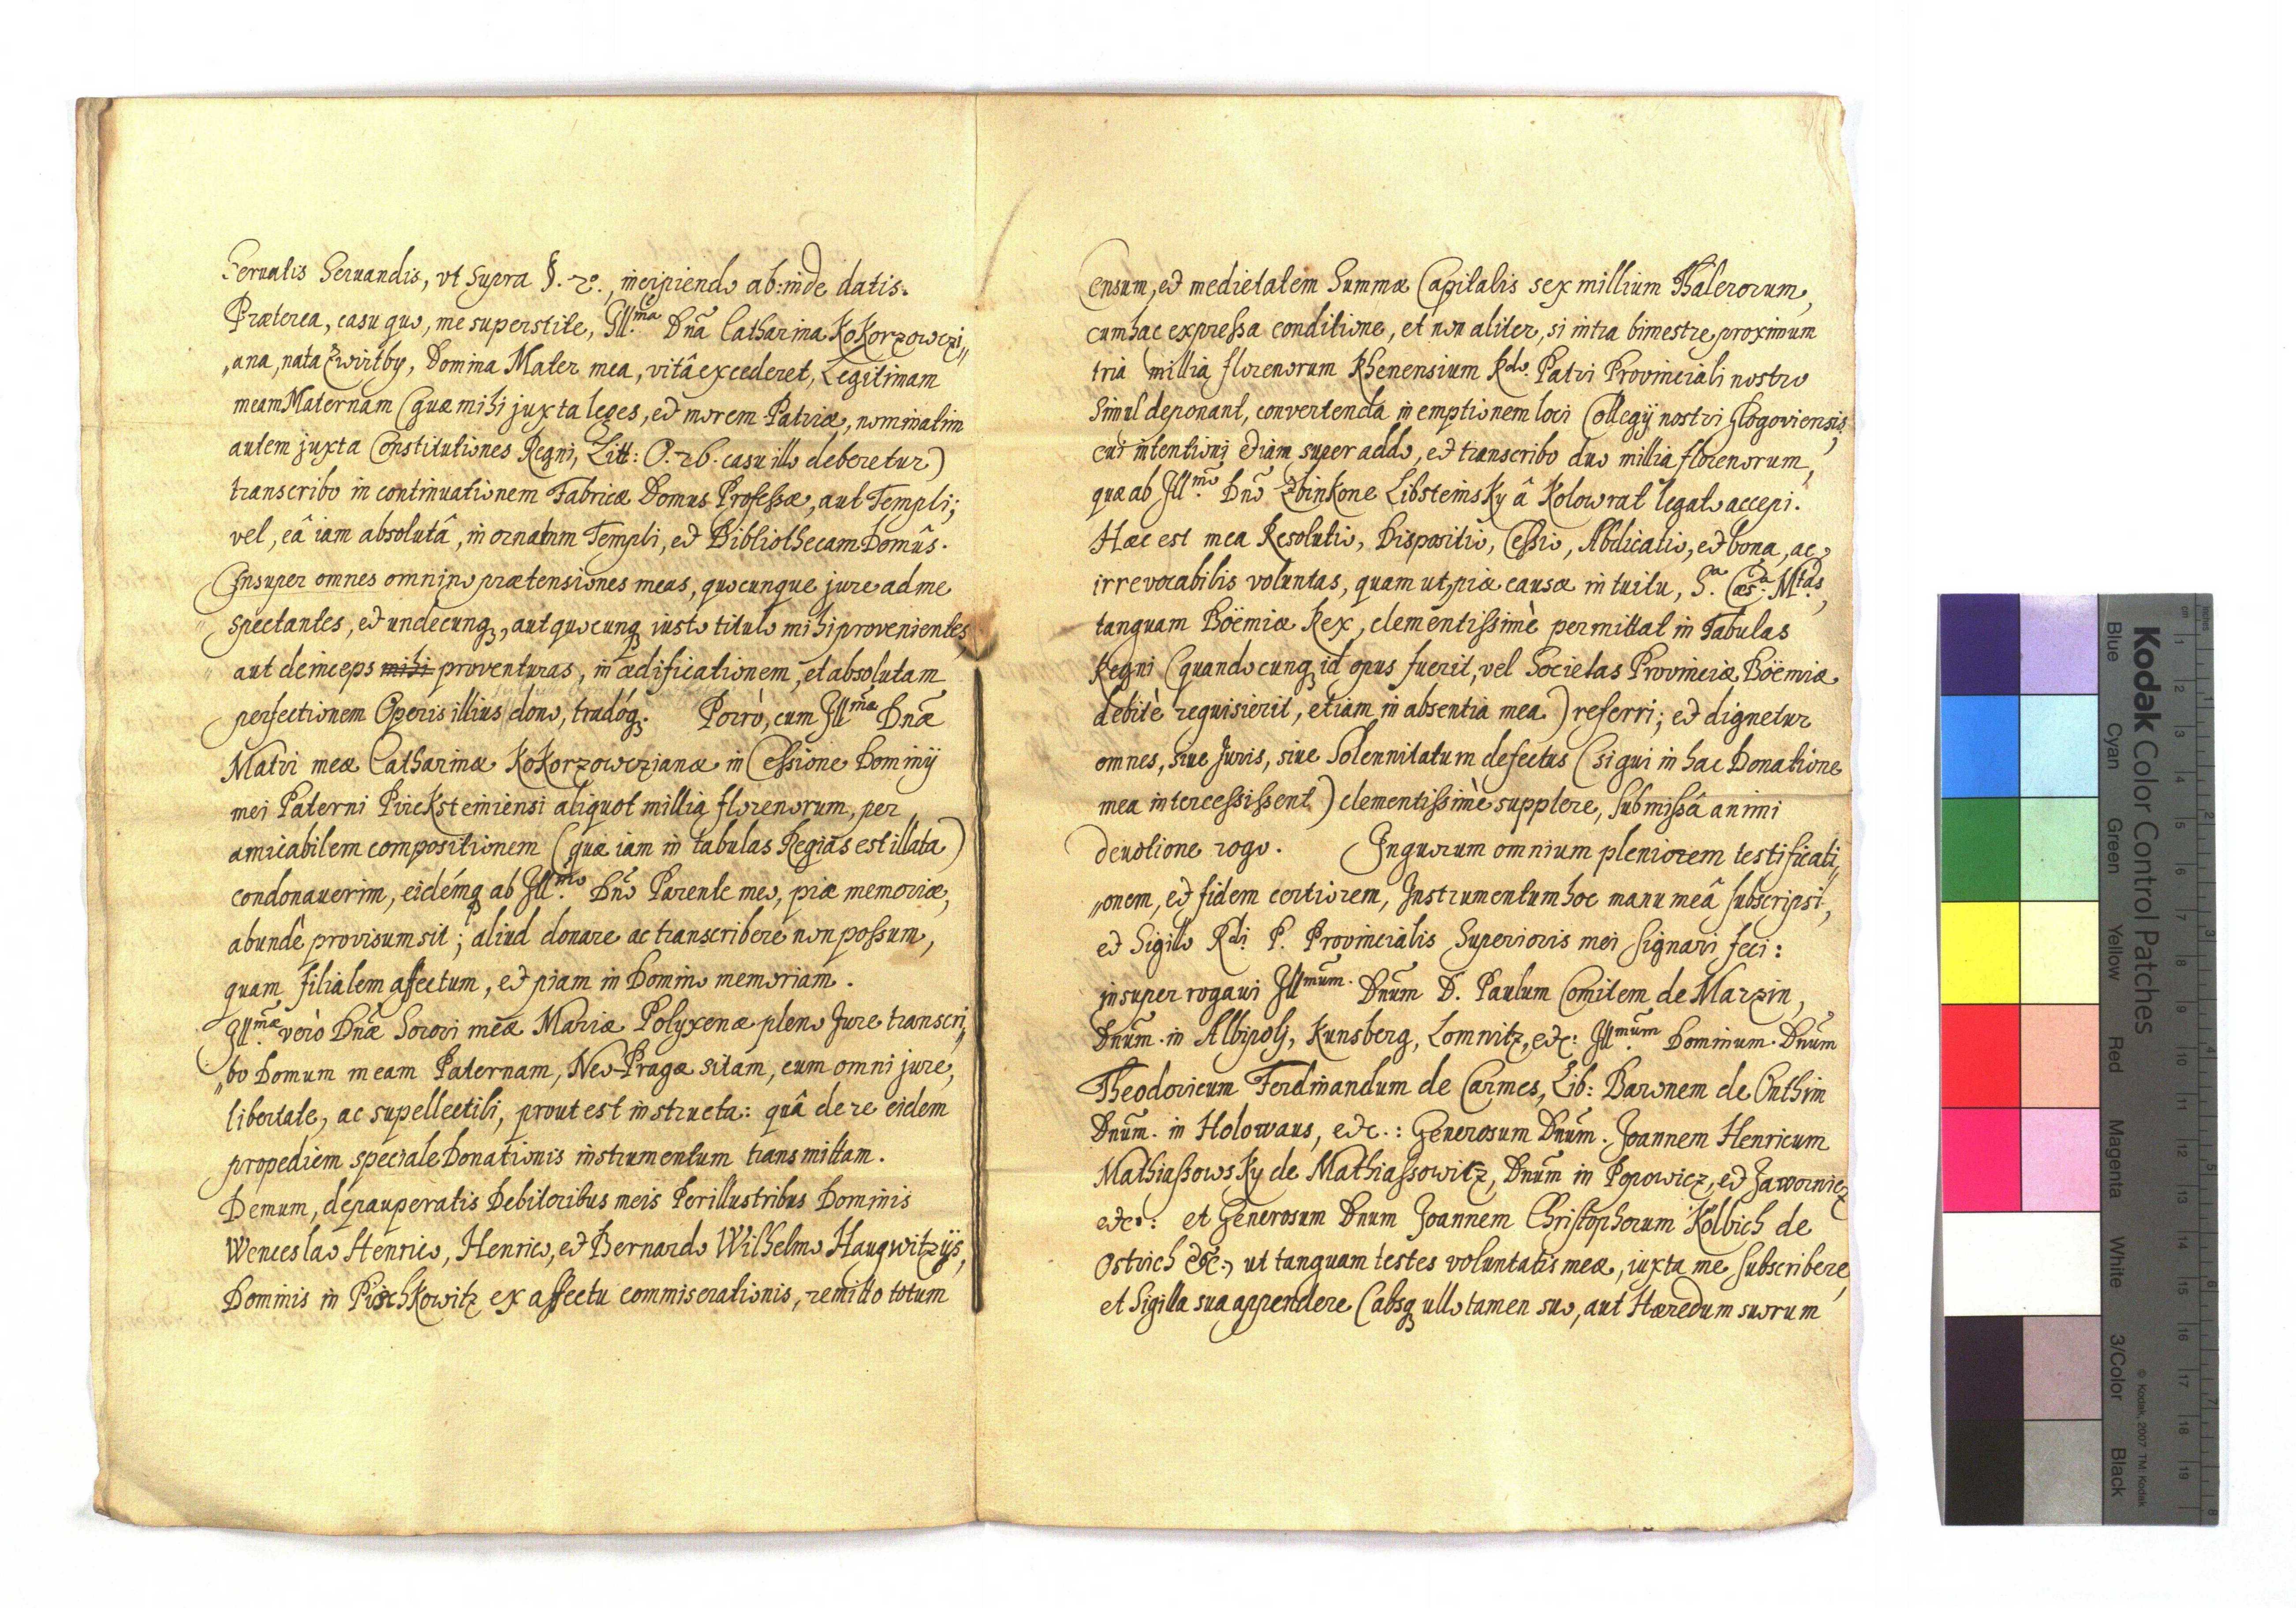 Seruatis Seruandis, vt Supra §. 2º., incipiendo ab: inde datis.
Præterea, casu quo, me superstite, Ill.ma Dña Catharina Kokorzowczi„
„ana, nata Zwirtby, Domina Mater mea, vitâ excederet, Legitimam
meam Maternam (quæ mihi juxta leges, et morem Patriæ, nominatim
autem juxta Constitutiones Regni, Litt: O. 26. casu illo deberetur)
transcribo in continuationem Fabricæ Domus Professæ, aut Templi;
vel, eâ iam absolutâ, in ornatum Templi, et Bibliothecam Domûs.
Insuper omnes omnino prætensiones meas, quocunque jure ad me
spectantes, et undecunq, aut quocunq iusto titulo mihi provenientes,
aut deinceps mihi proventuras, in ædificationem, et absolutam
perfectionem Operis illius dono, tradóq. Porrò, cum Ill.mæ Dnæ
Matri meæ Catharinæ Kokorzowczianæ in Cessione Dominij
mei Paterni Pircksteiniensi aliquot millia florenorum, per
amicabilem compositionem (quæ iam in tabulas Regias est illata)
condonauerim, eidémq ab Ill.mo Dno Parente meo, piæ memoriæ,
abundè provisum sit; aliud donare ac transcribere non possum,
quam filialem affectum, et piam in Domino memoriam.
Ill.mæ verò Dnæ Sorori meæ Mariæ Polyxenæ pleno Jure transcri„
„bo Domum meam Paternam, Neo-Pragæ sitam, cum omni jure,
libertate, ac supellectili, prout est instructa: quâ de re eidem
propediem speciale Donationis instrumentum transmittam.
Demum, depauperatis Debitoribus meis Perillustribus Dominis
Wenceslao Henrico, Henrico, et Bernardo Wilhelmo Haugwitzijs,
Dominis in Pischkowitz ex affectu commiserationis, remitto totum
Censum, et medietatem Summæ Capitalis sex millium Thalerorum,
cum hac expressa conditione, et non aliter, si intra bimestre proximum
tria millia florenorum Rhenensium Rdo. Patri Provinciali nostro
simul deponant, convertenda in emptionem loci Collegij nostri Glogoviensis,
cui intentioni etiam superaddo, et transcribo duo millia florenorum,
quæ ab Ill.mo Dno Zbinkone Libsteinsky â Kolowrat legato accepi.
Hæc est mea Resolutio, Dispositio, Cessio, Abdicatio, et bona, ac
irrevocabilis voluntas, quam ut, piæ causæ intuitu, S.a Cæs.a Mtas,
tanquam Boëmiæ Rex, clementissimè permittat in Tabulas
Regni (quandocunq id opus fuerit, vel Societas Provinciæ Boëmiæ
debitè requisierit, etiam in absentia mea) referri; et dignetur
omnes, siue Juris, siue Solennitatum defectus (si qui in hac Donatione
mea intercessissent) clementissimè supplere, submissâ animi
deuotione rogo. In quorum omnium pleniorem testificati„
„onem, et fidem certiorem, Instrumentum hoc manu meâ subscripsi,
et Sigillo Rdi P. Provincialis Superioris mei signari feci:
insuper rogaui Ill.mum. Dnum D. Paulum Comitem de Marzin,
Dnum. in Albipoli, Kunsberg, Lomnitz, etc: Ill.mum Dominum. Dnum
Theodoricum Ferdinandum de Carmes, Lib: Baronem de Onthin
Dnum. in Holowaus, etc.: Generosum Dnum. Joannem Henricum
Mathiassowsky de Mathiassowitz, Dnum in Popowicz, et Jawornicz
etc.: et Generosum Dnum Joannem Christophorum Kolbich de
Ostrich etc:, ut tanquam testes voluntatis meæ, iuxta me subscribere,
et Sigilla sua appendere (absq ullo tamen suo, aut Hæredum suorum
Kodak Color Control Patches
Blue Cyan Green Yellow Red Magenta White 3/Color Black
© Kodak, 2007 TM: Kodak